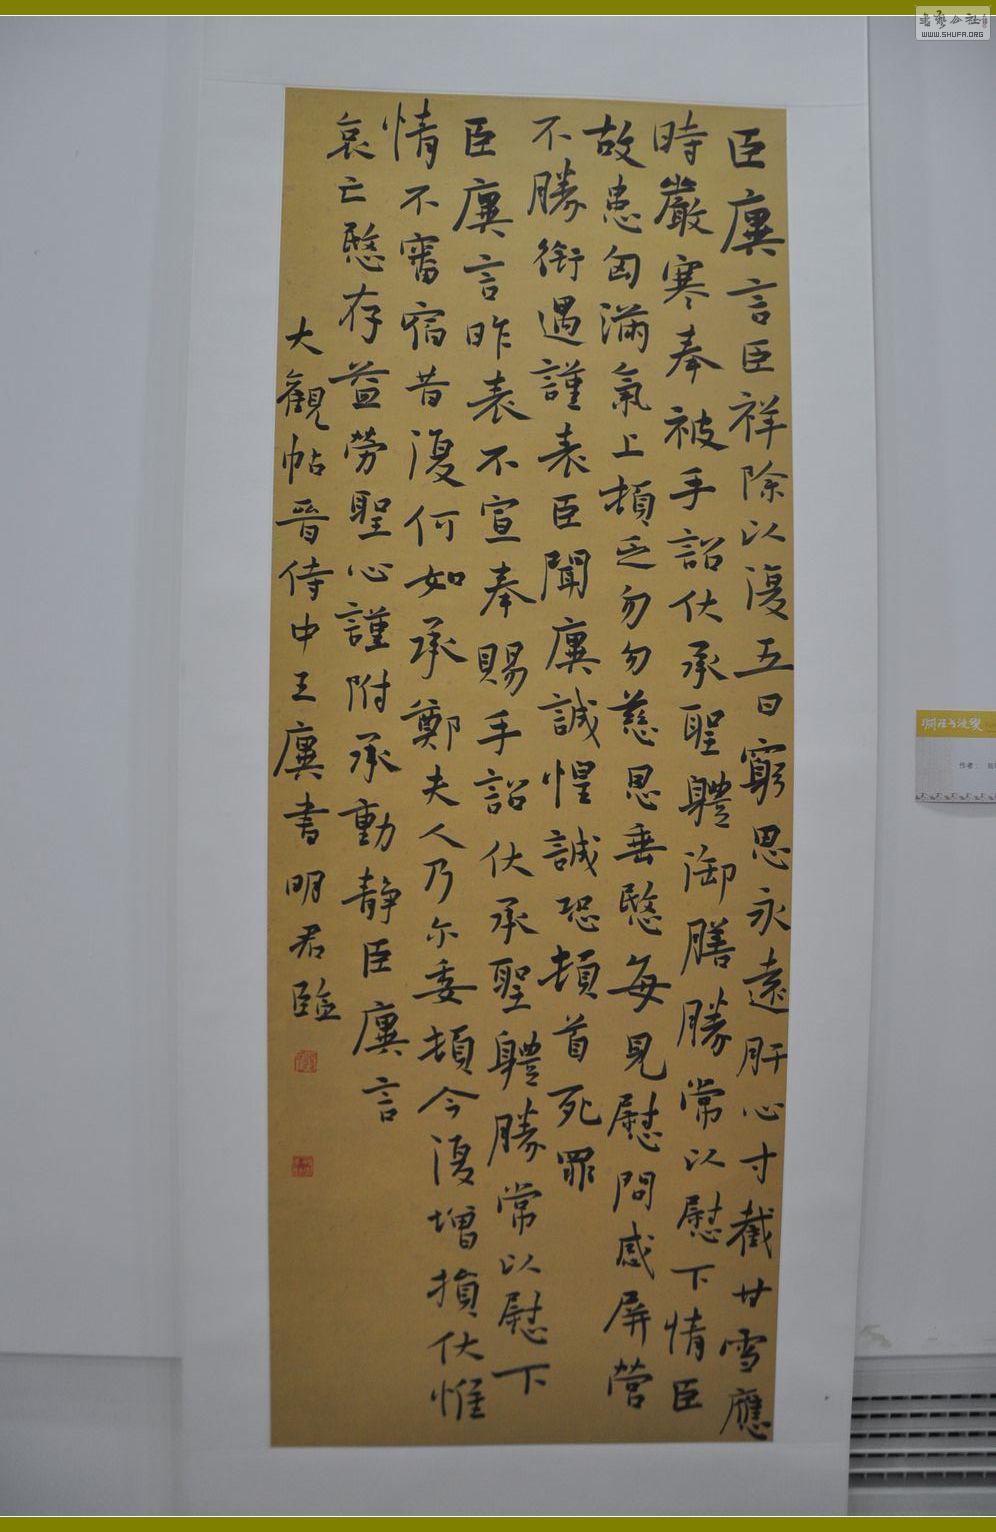 臣廙言臣祥除以復五日窮思永遠肝心寸截甘雪應
時嚴寒奉被手詔伏承聖體御膳勝常以慰下情臣
故患匈滿氣上頓乏勿勿慈恩垂愍每見慰問感屏營
不勝銜遇謹表臣聞廙誠惶誠恐頓首死罪
臣廙言昨表不宣奉賜手詔伏承聖體勝常以慰下
情不審宿昔復何如承鄭夫人乃尔委頓今復增損伏惟
哀亡愍存益勞聖心謹附承動靜臣廙言
大觀帖晉侍中王廙書明君臨
WWW.SHUFA.ORG
作者：